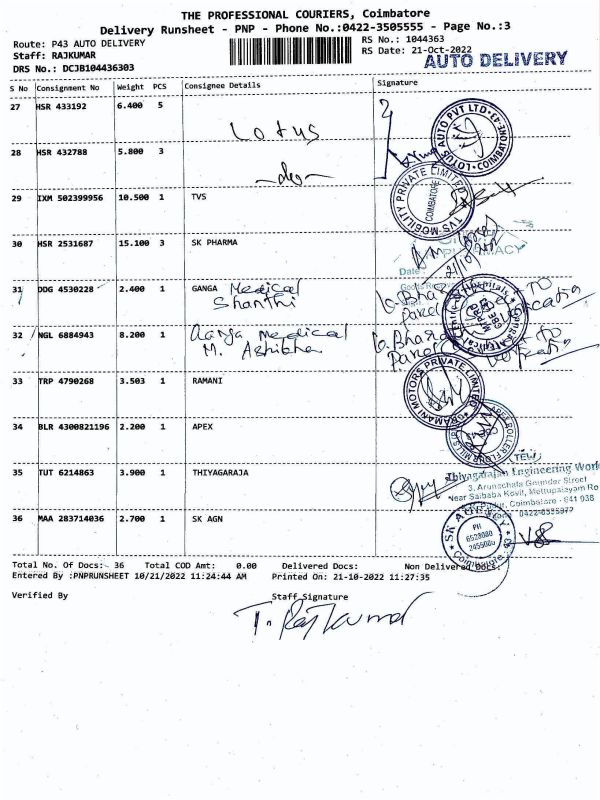 THE PROFESSIONAL COURIERS, Coimbatore
Delivery Runsheet - PNP - Phone No.:0422-3505555 - Page No.:3
Route: P43 AUTO DELIVERY
RS No.: 1044363
Staff: RAJKUMAR
RS Date: 21-Oct-2022
AUTO DELIVERY
DRS No.: DCJB104436303
S No Consignment No Weight PCS Consignee Details Signature
27 HSR 433192 6.400 5
Lotus
LOTUS AUTO PVT LTD
COIMBATORE
28 HSR 432788 5.800 3
-do-
29 IXM 502399956 10.500 1 TVS
TVS-MOBILITY PRIVATE LIMITED
COIMBATORE
30 HSR 2531687 15.100 3 SK PHARMA
Date
31 DDG 4530228 2.400 1 GANGA Medical
Shanthi
32 NGL 6884943 8.200 1 Ganga Medical
M.
33 TRP 4790268 3.503 1 RAMANI
RAMANI MOTORS PRIVATE LIMITED
34 BLR 4300821196 2.200 1 APEX
35 TUT 6214863 3.900 1 THIYAGARAJA
Thiyagarajan Engineering Work
3, Arunachala Gounder Street
Near Saibaba Kovil, Mettupalayam Ro
Coimbatore - 641 038
36 MAA 283714036 2.700 1 SK AGN
SK AGENCY
PH
6528080
2455080
Coimbatore
Total No. Of Docs:- 36 Total COD Amt: 0.00 Delivered Docs: Non Delivered Docs:
Entered By :PNPRUNSHEET 10/21/2022 11:24:44 AM Printed On: 21-10-2022 11:27:35
Verified By Staff Signature
T. Rajkumar